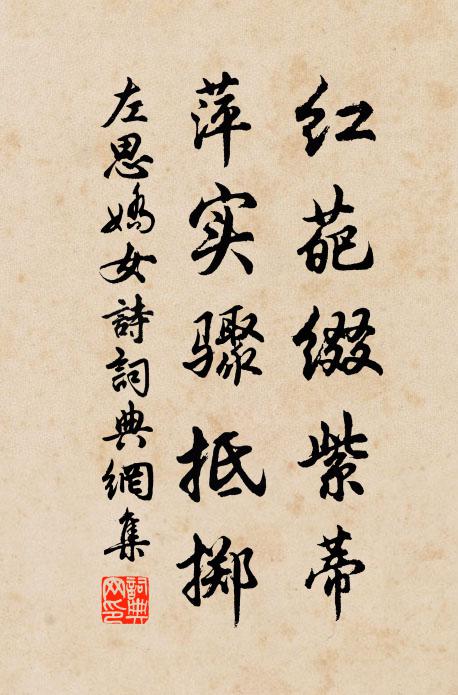 红葩缀紫蒂
萍实骤抵掷
左思嬌女詩詞典網集
詞典網印